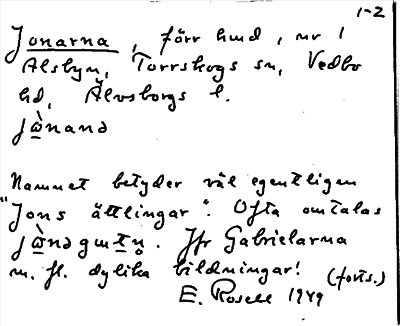 1-2
Jonarna, förr hmd, nr 1
Alsbyn, Torrskogs sn, Vedbo
hd, Älvsborgs l.
jὼnanə
Namnet betyder väl egentligen
"Jons ättlingar". Ofta omtalas
Jfr Gabrielarna
m. fl. dylika bildningar! (forts.)
E. Rosell 1949